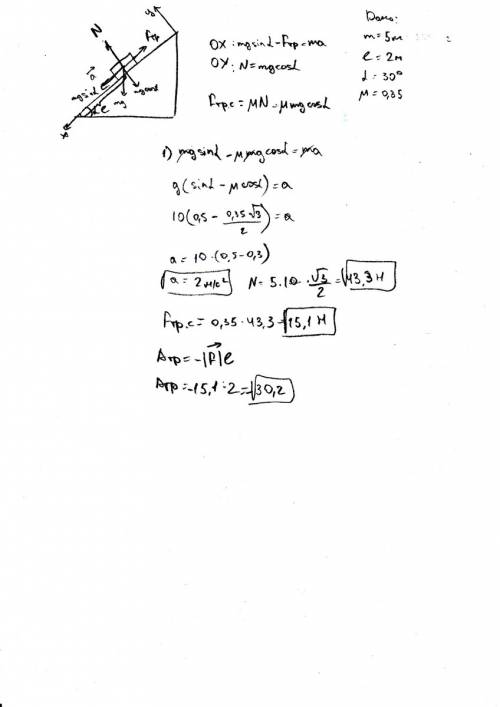 y
N
Fтр
a
mgsinα
mg
mgcosα
α
l
x
OX: mgsinα-Fтр=ma
OY: N=mgcosα
Fтр.c = μN = μmgcosα
Dано:
m=5
l=2м
α=30°
μ=0,35
1) mgsinα-μmgcosα=ma
g(sinα-μcosα)=a
10(0,5-\frac{0,35√3}{2})=a
a=10·(0,5-0,3)
a=2м/с² N=5·10·\frac{√3}{2}=43,3 Н
Fтр.с=0,35·43,3=15,1 Н
Aтр=-|F|l
Aтр=-15,1·2=-30,2